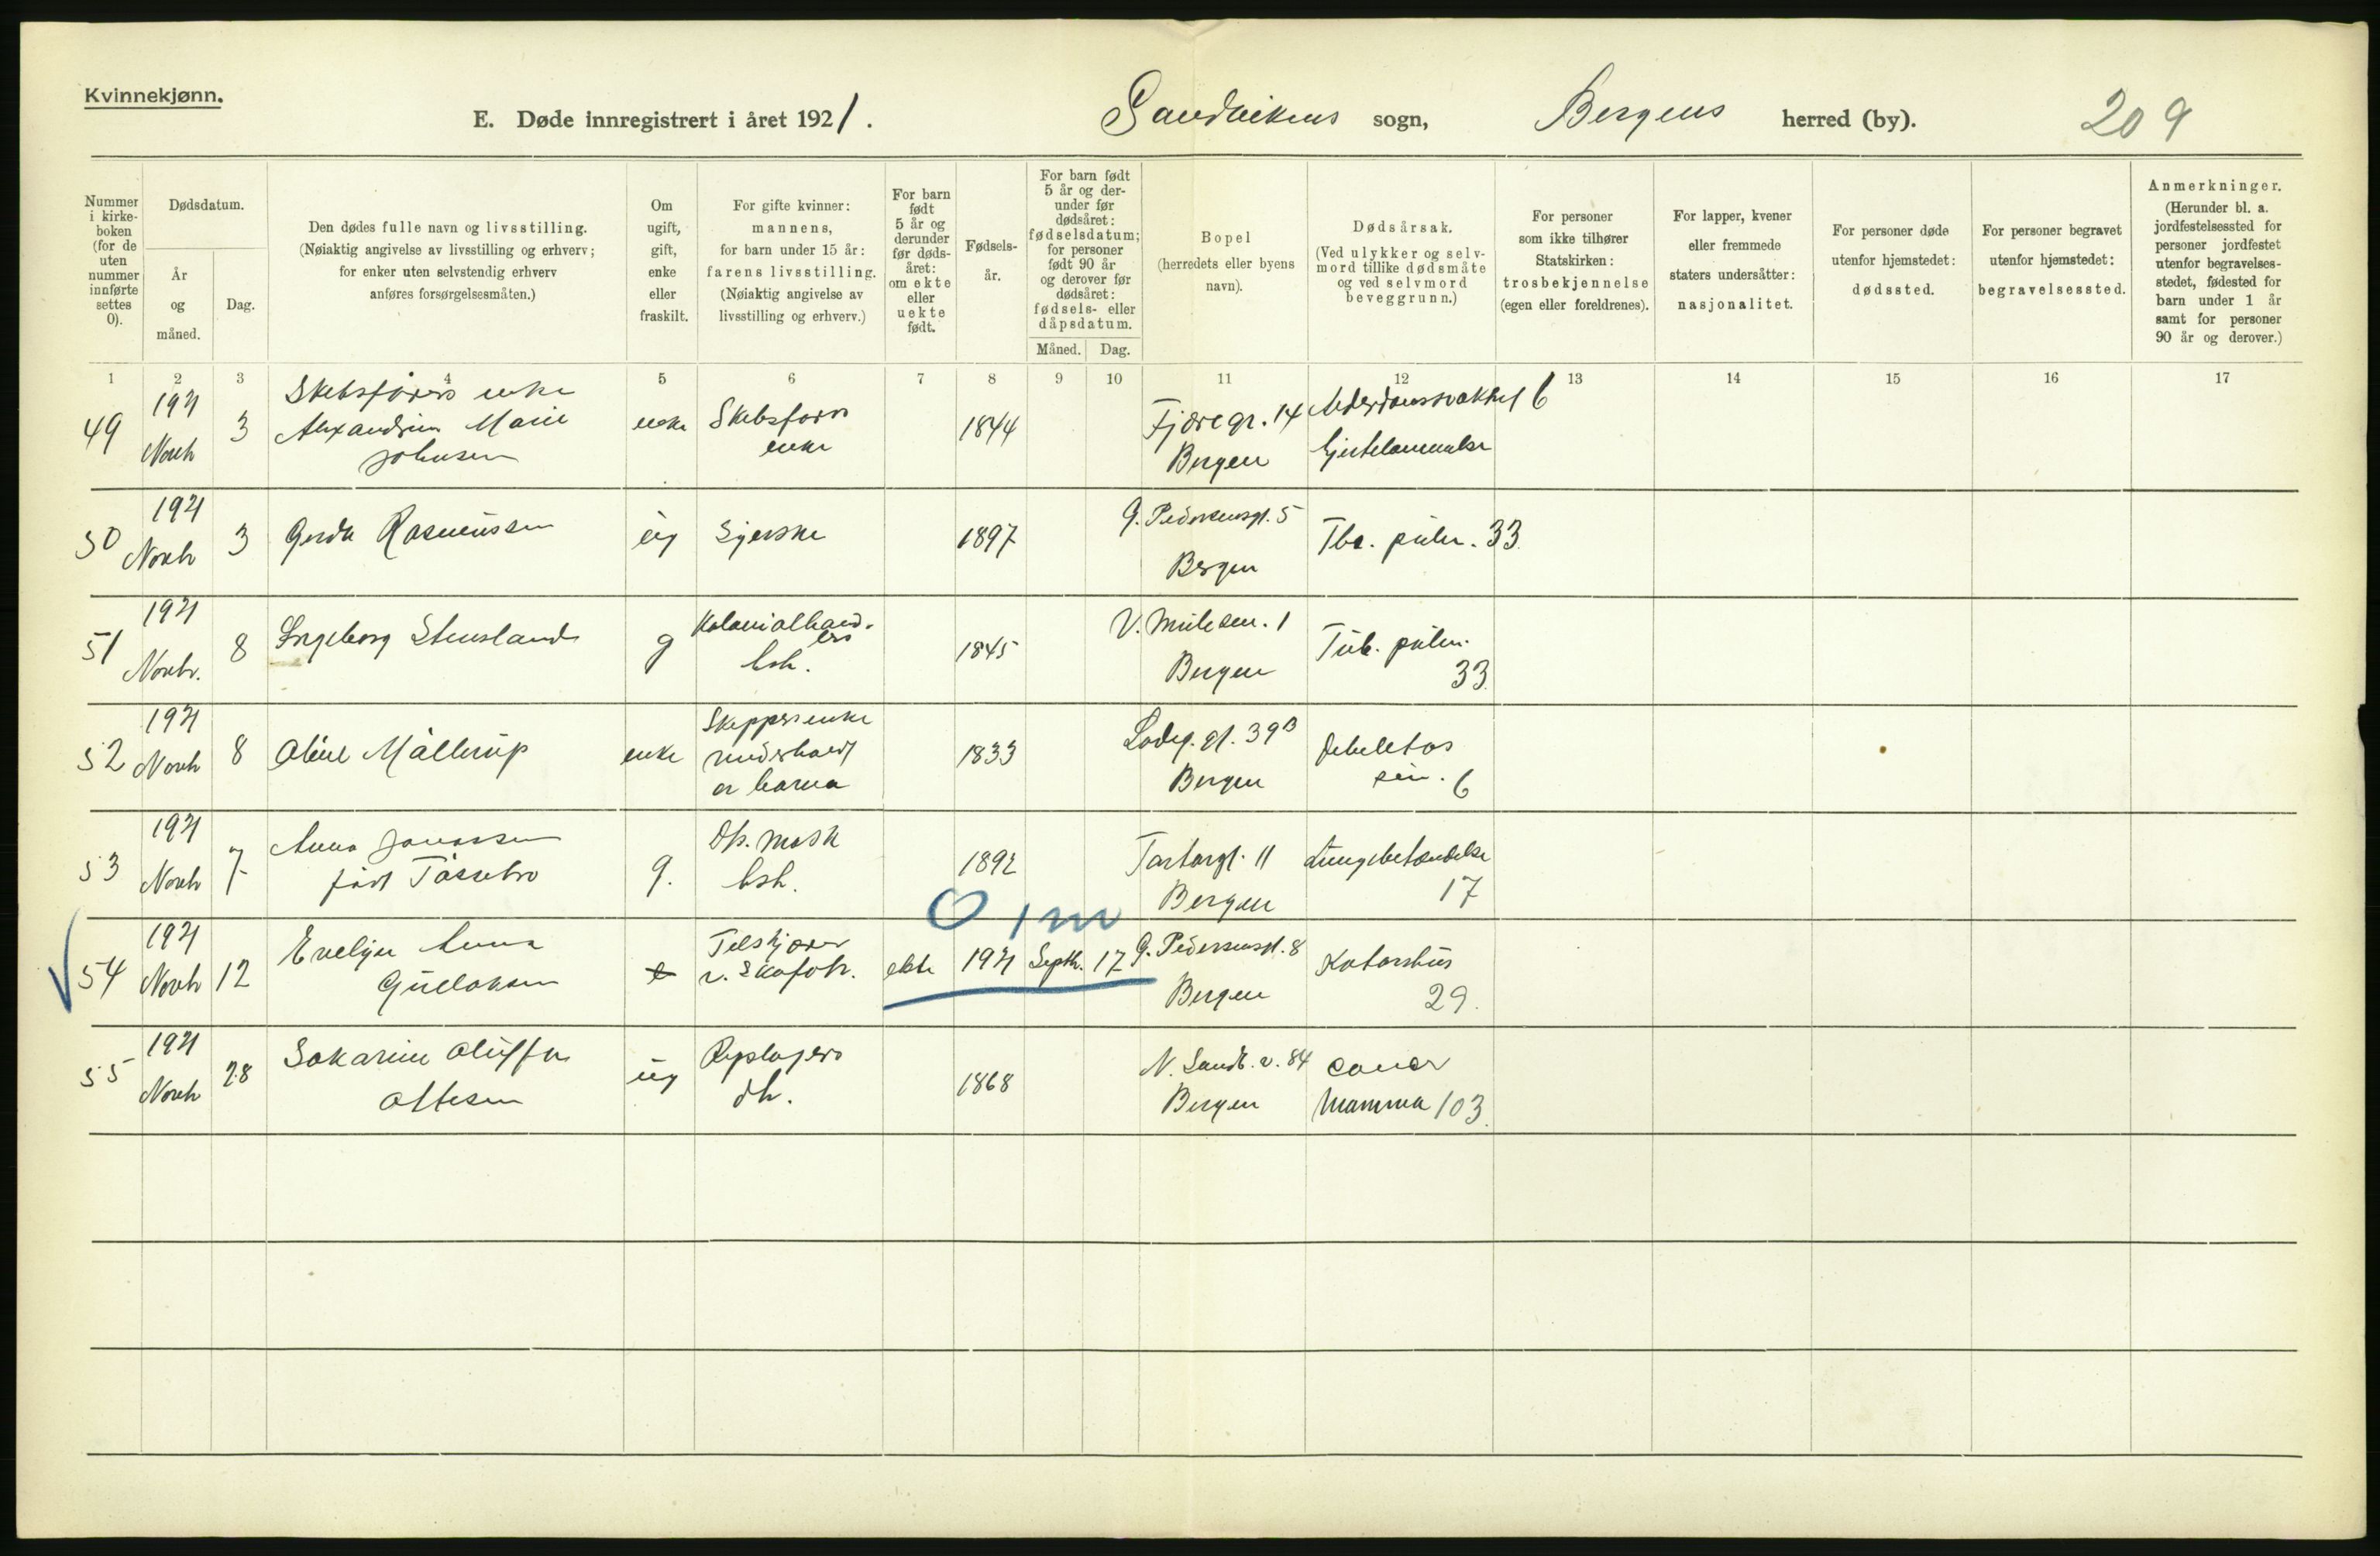 Kvinnekjønn.
E. Døde innregistrert i året 1921. Sandvikens sogn, Bergens herred (by). 209
Nummer i kirke-boken (for de uten nummer innførte settes 0).
Dødsdatum.
År og måned.
Dag.
Den dødes fulle navn og livsstilling.
(Nøiaktig angivelse av livsstilling og erhverv;
for enker uten selvstendig erhverv
anføres forsørgelsesmåten.)
Om
ugift,
gift,
enke
eller
fraskilt.
For gifte kvinner:
mannens,
for barn under 15 år:
farens livsstilling.
(Nøiaktig angivelse av
livsstilling og erhverv.)
For barn
født
5 år og
derunder
før døds-
året:
om ekte
eller
uekte
født.
Fødsels-
år.
For barn født
5 år og der-
under før
dødsåret:
fødselsdatum;
for personer
født 90 år
og derover før
dødsåret:
fødsels- eller
dåpsdatum.
Måned. Dag.
Bopel
(herredets eller byens
navn).
Dødsårsak.
(Ved ulykker og selv-
mord tillike dødsmåte
og ved selvmord
beveggrunn.)
For personer
som ikke tilhører
Statskirken:
trosbekjennelse
(egen eller foreldrenes).
For lapper, kvener
eller fremmede
staters undersåtter:
nasjonalitet.
For personer døde
utenfor hjemstedet:
dødssted.
For personer begravet
utenfor hjemstedet:
begravelsessted.
Anmerkninger.
(Herunder bl. a.
jordfestelsessted for
personer jordfestet
utenfor begravelses-
stedet, fødested for
barn under 1 år
samt for personer
90 år og derover.)
1 2 3 4 5 6 7 8 9 10 11 12 13 14 15 16 17
49 1921 Novb 3 Skibsførers enke
Alexandrine Marie
Johnsen
enke Skibsførers
enke
1844 Fjæregr. 14
Bergen
6
50 1921 Novb 3 Gerda Rasmussen ug Syerske 1897 G. Pedersensgt. 5
Bergen
Tbc. pulm. 33
51 1921 Novbr. 8 Ingeborg Stensland g Kolonialhand-
lers
hst.
1845 V. Mulesm. 1
Bergen
Tub. pulm.
33
52 1921 Novb 8 Oline Møllerup enke Skippersenke
underholdt
av barna
1833 Ladeg. gt. 39B
Bergen
Debilitas
sen. 6
53 1921 Novb 7 Anna Jonassen
født Tossebro
g. hst.
1892 Tartargt. 11
Bergen
Lungebetændelse
17
0 1 m
54 1921 Novb 12 Evelyn Anna
Gullaksen
Tilskjærer
v. Skofabr.
ekte 1921 Septb. 17 G. Pedersensgt. 8
Bergen
29.
55 1921 Novb 28 Sakarine Oluffa
Ottesen
ug Repslagers
dt.
1868 N. Sandv. v. 84
Bergen
Cancer
Mamma 103.